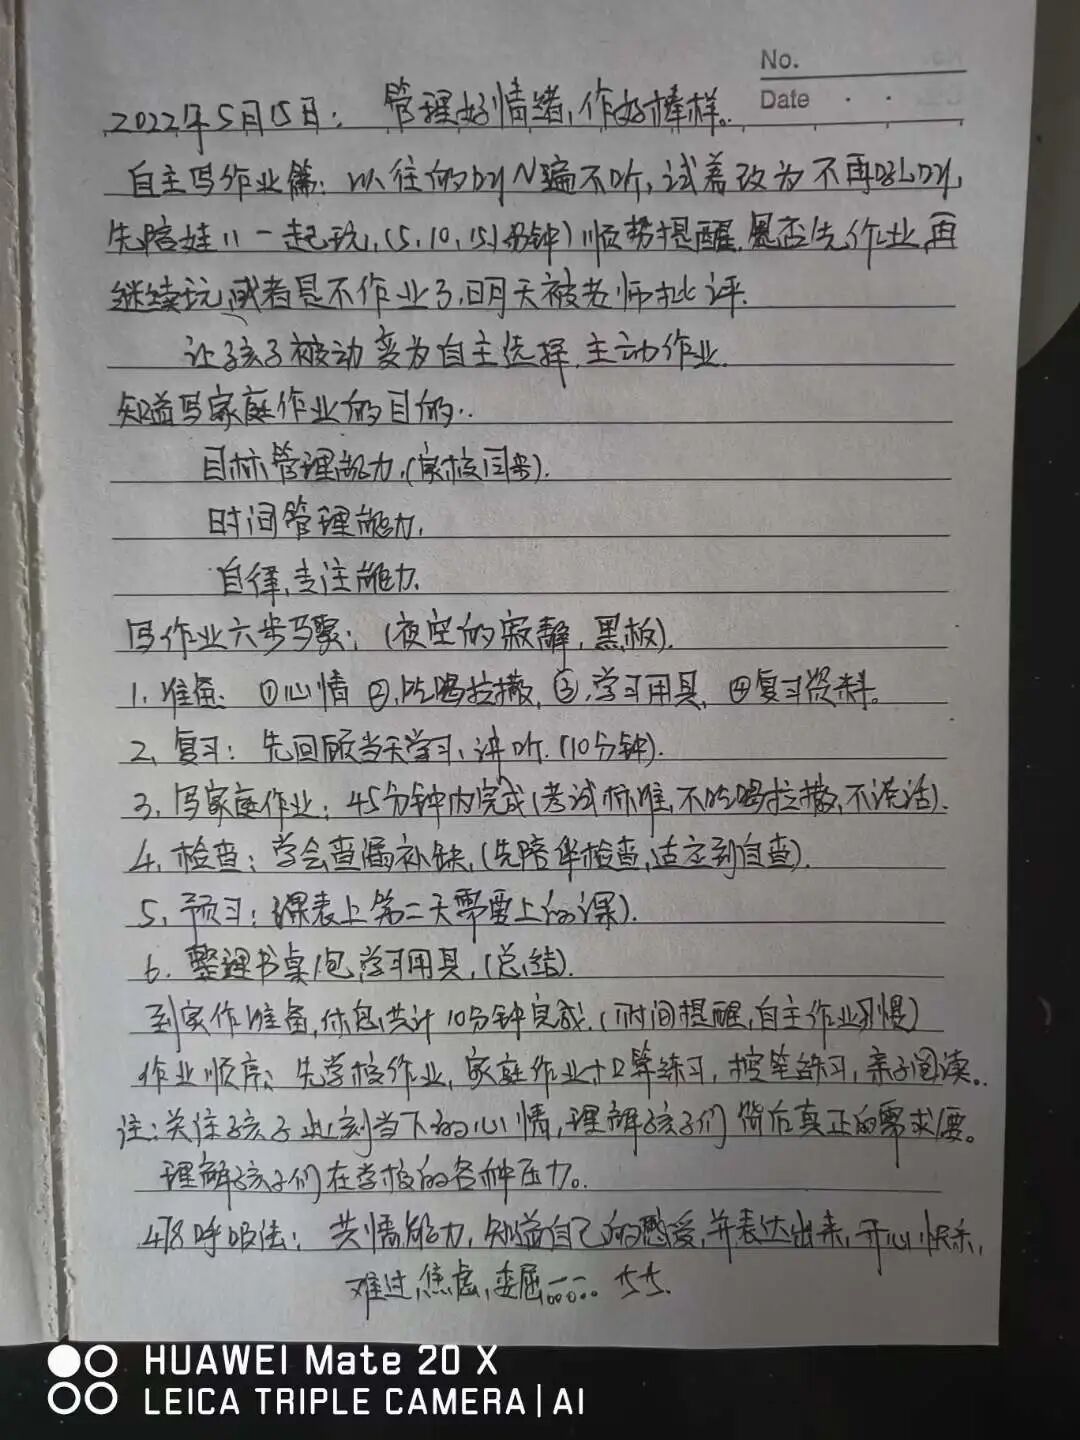 No.
Date
2022年5月15日: 管理好情绪,作好榜样。
自主写作业篇: 以往的叫N遍不听,试着改为不再吼叫,
先陪娃儿一起玩,(5,10,15分钟)顺势提醒,是否先作业,再
继续玩,或者是不作业了,明天被老师批评.
让孩子被动变为自主选择,主动作业.
知道写家庭作业的目的..
目标管理能力,(家校同步).
时间管理能力,
自律,专注能力.
写作业六步骤: (夜空的寂静,黑板).
1. 准备. ①心情 ②吃喝拉撒, ③学习用具, ④复习资料。
2. 复习: 先回顾当天学习,讲听.(10分钟).
3. 写家庭作业: 45分钟内完成(考试标准,不吃喝拉撒,不说话).
4. 检查: 学会查漏补缺,(先陪伴检查,过之到自查).
5. 预习: 课表上第二天需要上的课).
6. 整理书桌/包,学习用具,(总结).
到家作准备,休息共计10分钟完成.(时间提醒,自主作业习惯)
作业顺序: 先学校作业,家庭作业+口算练习,控笔练习,亲子阅读..
注:关注孩子此刻当下的心情,理解孩子们背后真正的需求/要。
理解孩子们在学校的各种压力。
478呼吸法: 共情能力,知道自己的感受,并表达出来,开心快乐,
难过,焦虑,委屈......
HUAWEI Mate 20 X
LEICA TRIPLE CAMERA | AI